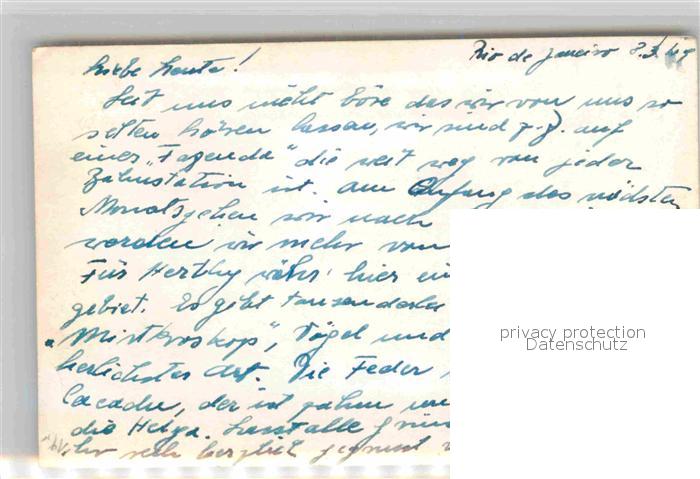 Rio de Janeiro 8.3.49
Liebe Leute!
Seit uns nicht böse das wir von uns so
selten hören lassen, wir sind z.Z. auf
einer „Fazenda“ die weit weg von jeder
Bahnstation ist. Am Anfang des nächsten
Monats gehen wir nach
werden wir mehr von
Für währ' hier ein
gebiet. Es gibt
„ Vögel und
herlichster Art. Die Feder
Cacadu, der ist zahm
die Helga. Lasst alle
ihr sehr herzlich gegrüsst
privacy protection
Datenschutz